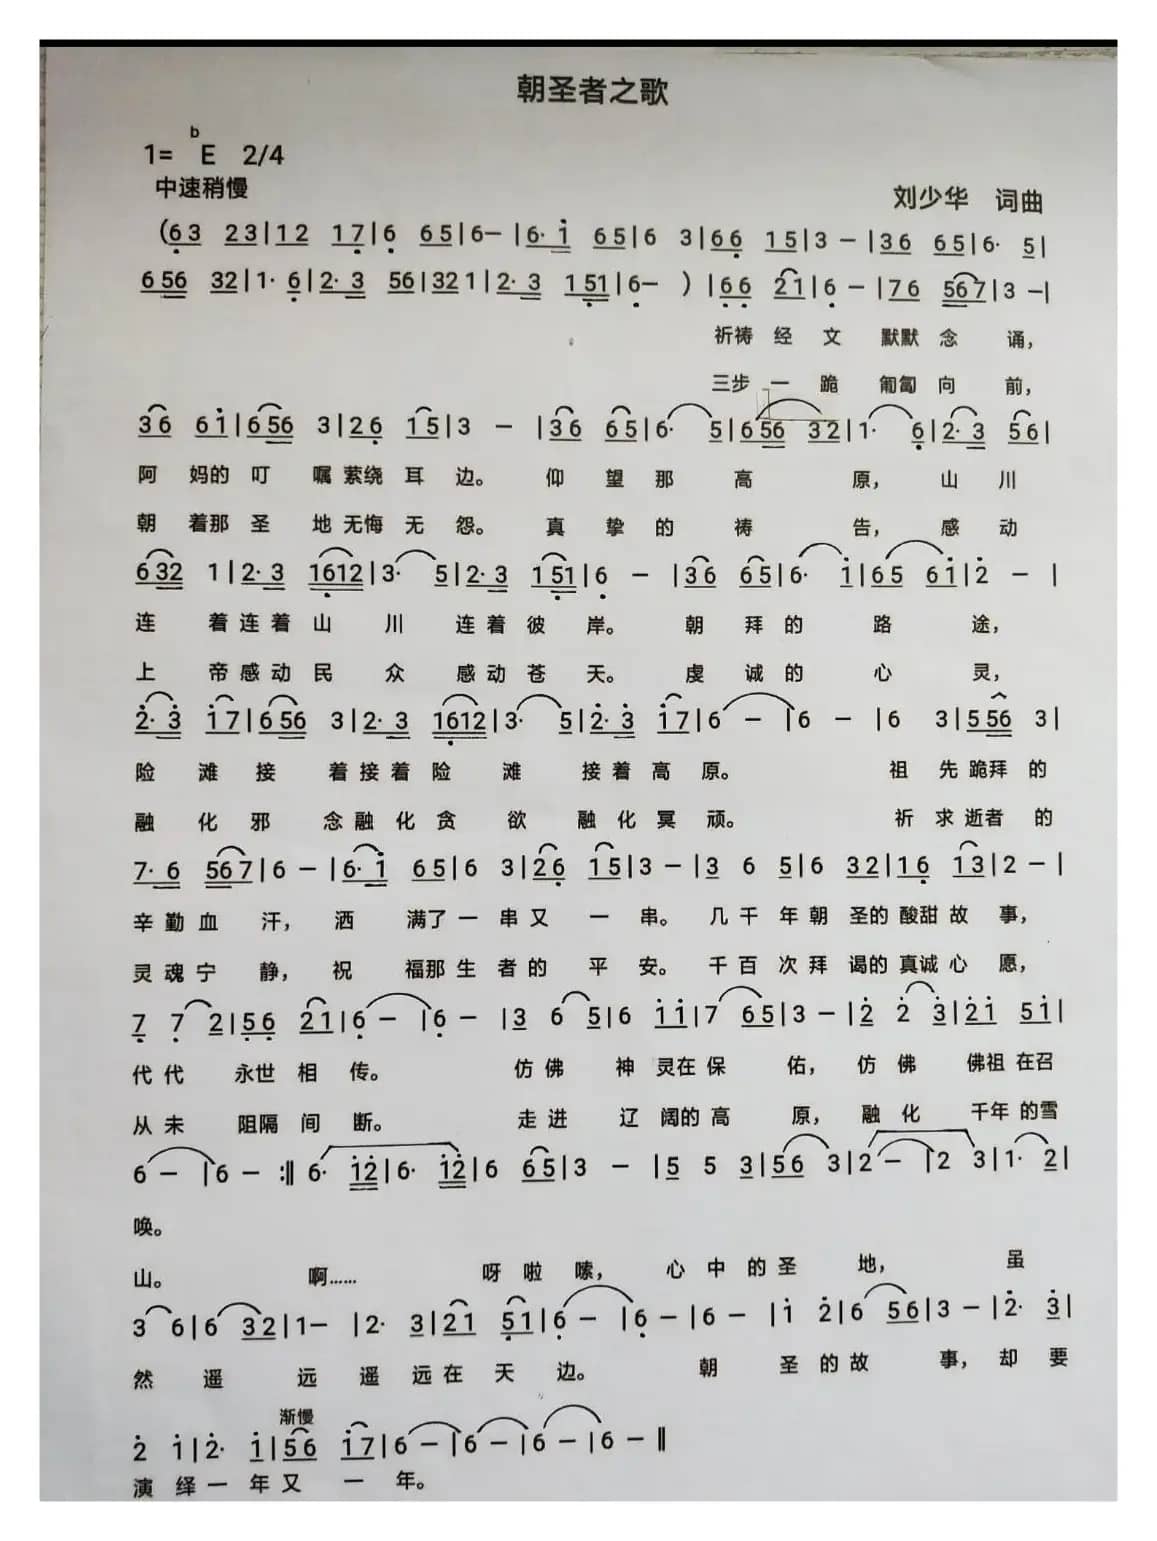 朝圣者之歌
1= ᵇE 2/4
中速稍慢
刘少华 词曲
(6 3 2 3 | 1 2 1 7 | 6 6 5 | 6 — | 6· 1 6 5 | 6 3 | 6 6 1 5 | 3 — | 3 6 6 5 | 6· 5 |
6 5 6 3 2 | 1· 6 | 2· 3 5 6 | 3 2 1 | 2· 3 1 5 1 | 6 — ) | 6 6 2 1 | 6 — | 7 6 5 6 7 | 3 — |
祈祷 经 文 默默 念 诵,
三步 一 跪 匍匐 向 前,
3 6 6 1 | 6 5 6 3 | 2 6 1 5 | 3 — | 3 6 6 5 | 6· 5 | 6 5 6 3 2 | 1· 6 | 2· 3 5 6 |
阿 妈的 叮 嘱 萦绕 耳 边。 仰 望 那 高 原, 山 川
朝 着那 圣 地 无悔 无 怨。 真 挚 的 祷 告, 感 动
6 3 2 1 | 2· 3 1 6 1 2 | 3· 5 | 2· 3 1 5 1 | 6 — | 3 6 6 5 | 6· 1 | 6 5 6 1 | 2 — |
连 着 连 着 山 川 连 着 彼 岸。 朝 拜 的 路 途,
上 帝 感 动 民 众 感 动 苍 天。 虔 诚 的 心 灵,
2· 3 1 7 | 6 5 6 3 | 2· 3 1 6 1 2 | 3· 5 | 2· 3 1 7 | 6 — | 6 — | 6 3 | 5 5 6 3 |
险 滩 接 着 接 着 险 滩 接 着 高 原。 祖 先 跪拜 的
融 化 邪 念 融 化 贪 欲 融 化 冥 顽。 祈 求 逝者 的
7· 6 5 6 7 | 6 — | 6· 1 6 5 | 6 3 | 2 6 1 5 | 3 — | 3 6 5 | 6 3 2 | 1 6 1 3 | 2 — |
辛 勤 血 汗, 洒 满了 一 串 又 一 串。 几 千 年 朝 圣的 酸甜 故 事,
灵 魂 宁 静, 祝 福那 生 者 的 平 安。 千 百 次 拜 谒的 真诚 心 愿,
7 7 2 | 5 6 2 1 | 6 — | 6 — | 3 6 5 | 6 1 1 | 7 6 5 | 3 — | 2 2 3 | 2 1 5 1 |
代 代 永世 相 传。 仿 佛 神 灵在 保 佑, 仿 佛 佛祖 在召
从 未 阻隔 间 断。 走 进 辽 阔的 高 原, 融 化 千年 的雪
6 — | 6 — :‖ 6· 1 2 | 6· 1 2 | 6 6 5 | 3 — | 5 5 3 | 5 6 3 | 2 — | 2 3 | 1· 2 |
唤。
山。 啊…… 呀 啦 嗦, 心 中 的 圣 地, 虽
3 6 | 6 3 2 | 1 — | 2· 3 | 2 1 5 1 | 6 — | 6 — | 6 — | 1 2 | 6 5 6 | 3 — | 2· 3 |
然 遥 远 遥 远 在 天 边。 朝 圣 的 故 事, 却 要
渐慢
2 1 | 2· 1 | 5 6 1 7 | 6 — | 6 — | 6 — | 6 — ‖
演 绎 一 年 又 一 年。